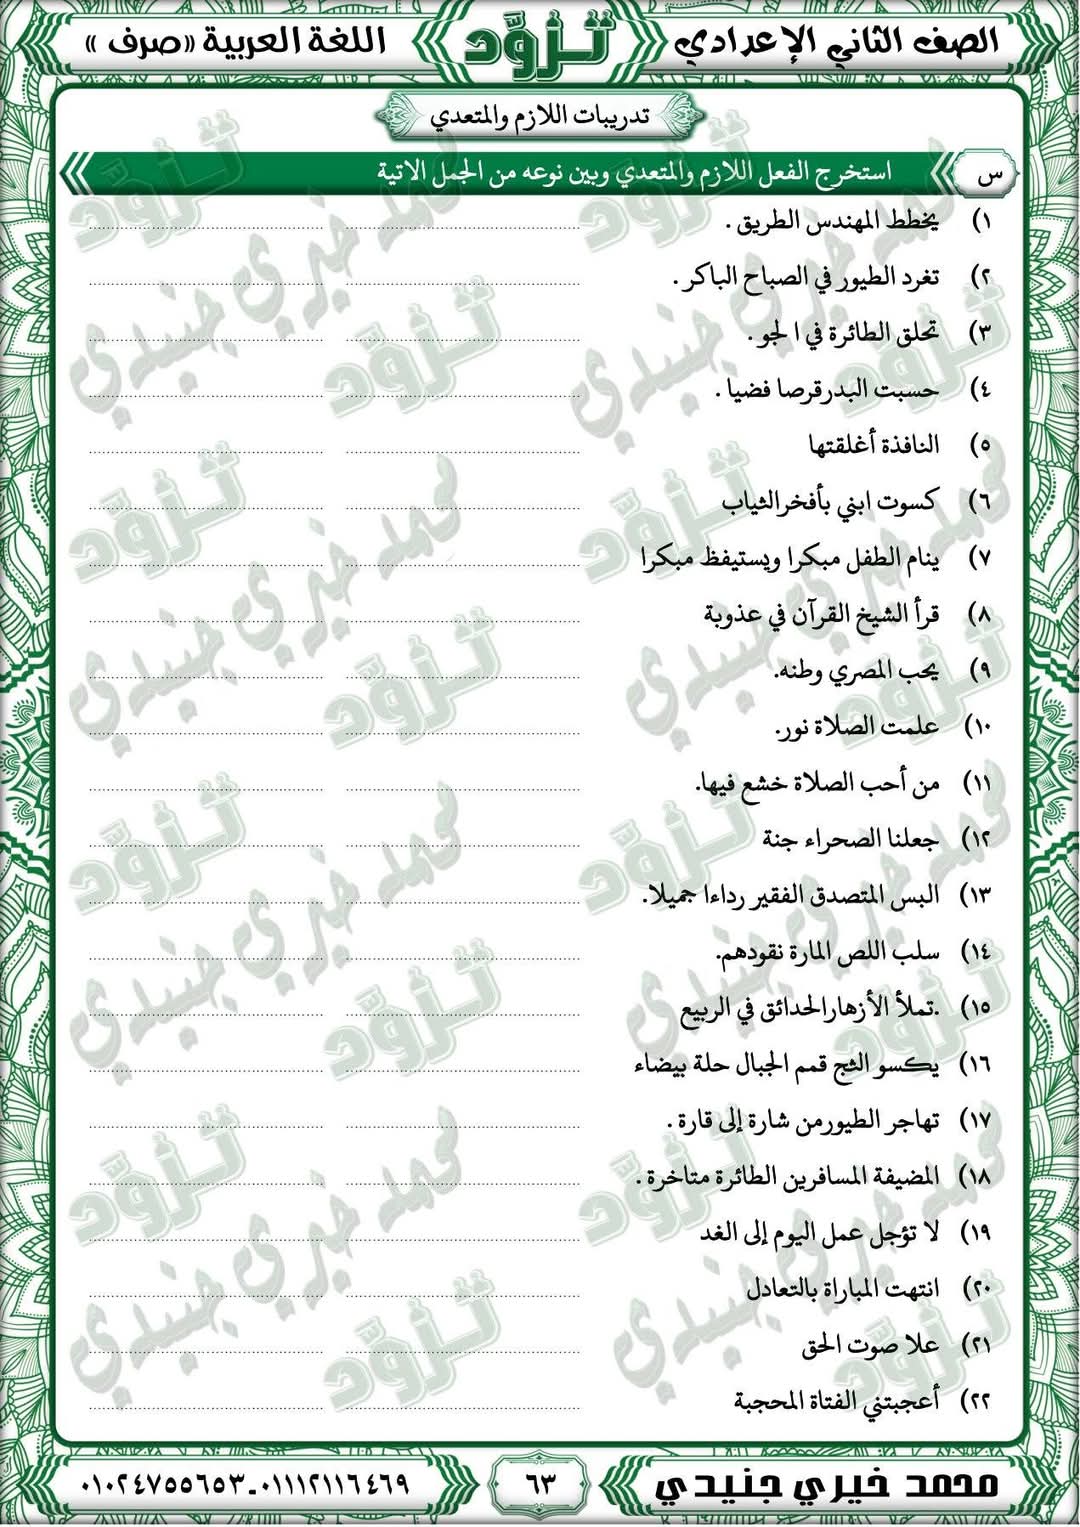 الصف الثاني الإعدادي
تزوَّد
اللغة العربية «صرف »
تدريبات اللازم والمتعدي
س
استخرج الفعل اللازم والمتعدي وبين نوعه من الجمل الاتية
١) يخطط المهندس الطريق .
٢) تغرد الطيور في الصباح الباكر .
٣) تحلق الطائرة في ا لجو .
٤) حسبت البدرقرصا فضيا .
٥) النافذة أغلقتها
٦) كسوت ابني بأفخرالثياب
٧) ينام الطفل مبكرا ويستيفظ مبكرا
٨) قرأ الشيخ القرآن في عذوبة
٩) يحب المصري وطنه.
١٠) علمت الصلاة نور.
١١) من أحب الصلاة خشع فيها.
١٢) جعلنا الصحراء جنة
١٣) البس المتصدق الفقير رداءا جميلا.
١٤) سلب اللص المارة نقودهم.
١٥) .تملأ الأزهارالحدائق في الربيع
١٦) يكسو الثج قمم الجبال حلة بيضاء
١٧) تهاجر الطيورمن شارة إلى قارة .
١٨) المضيفة المسافرين الطائرة متاخرة .
١٩) لا تؤجل عمل اليوم إلى الغد
٢٠) انتهت المباراة بالتعادل
٢١) علا صوت الحق
٢٢) أعجبتني الفتاة المحجبة
محمد خيري جنيدي
٦٣
٠١٠٢٤٧٥٥٦٥٣-٠١١١٢١١٦٤٦٩